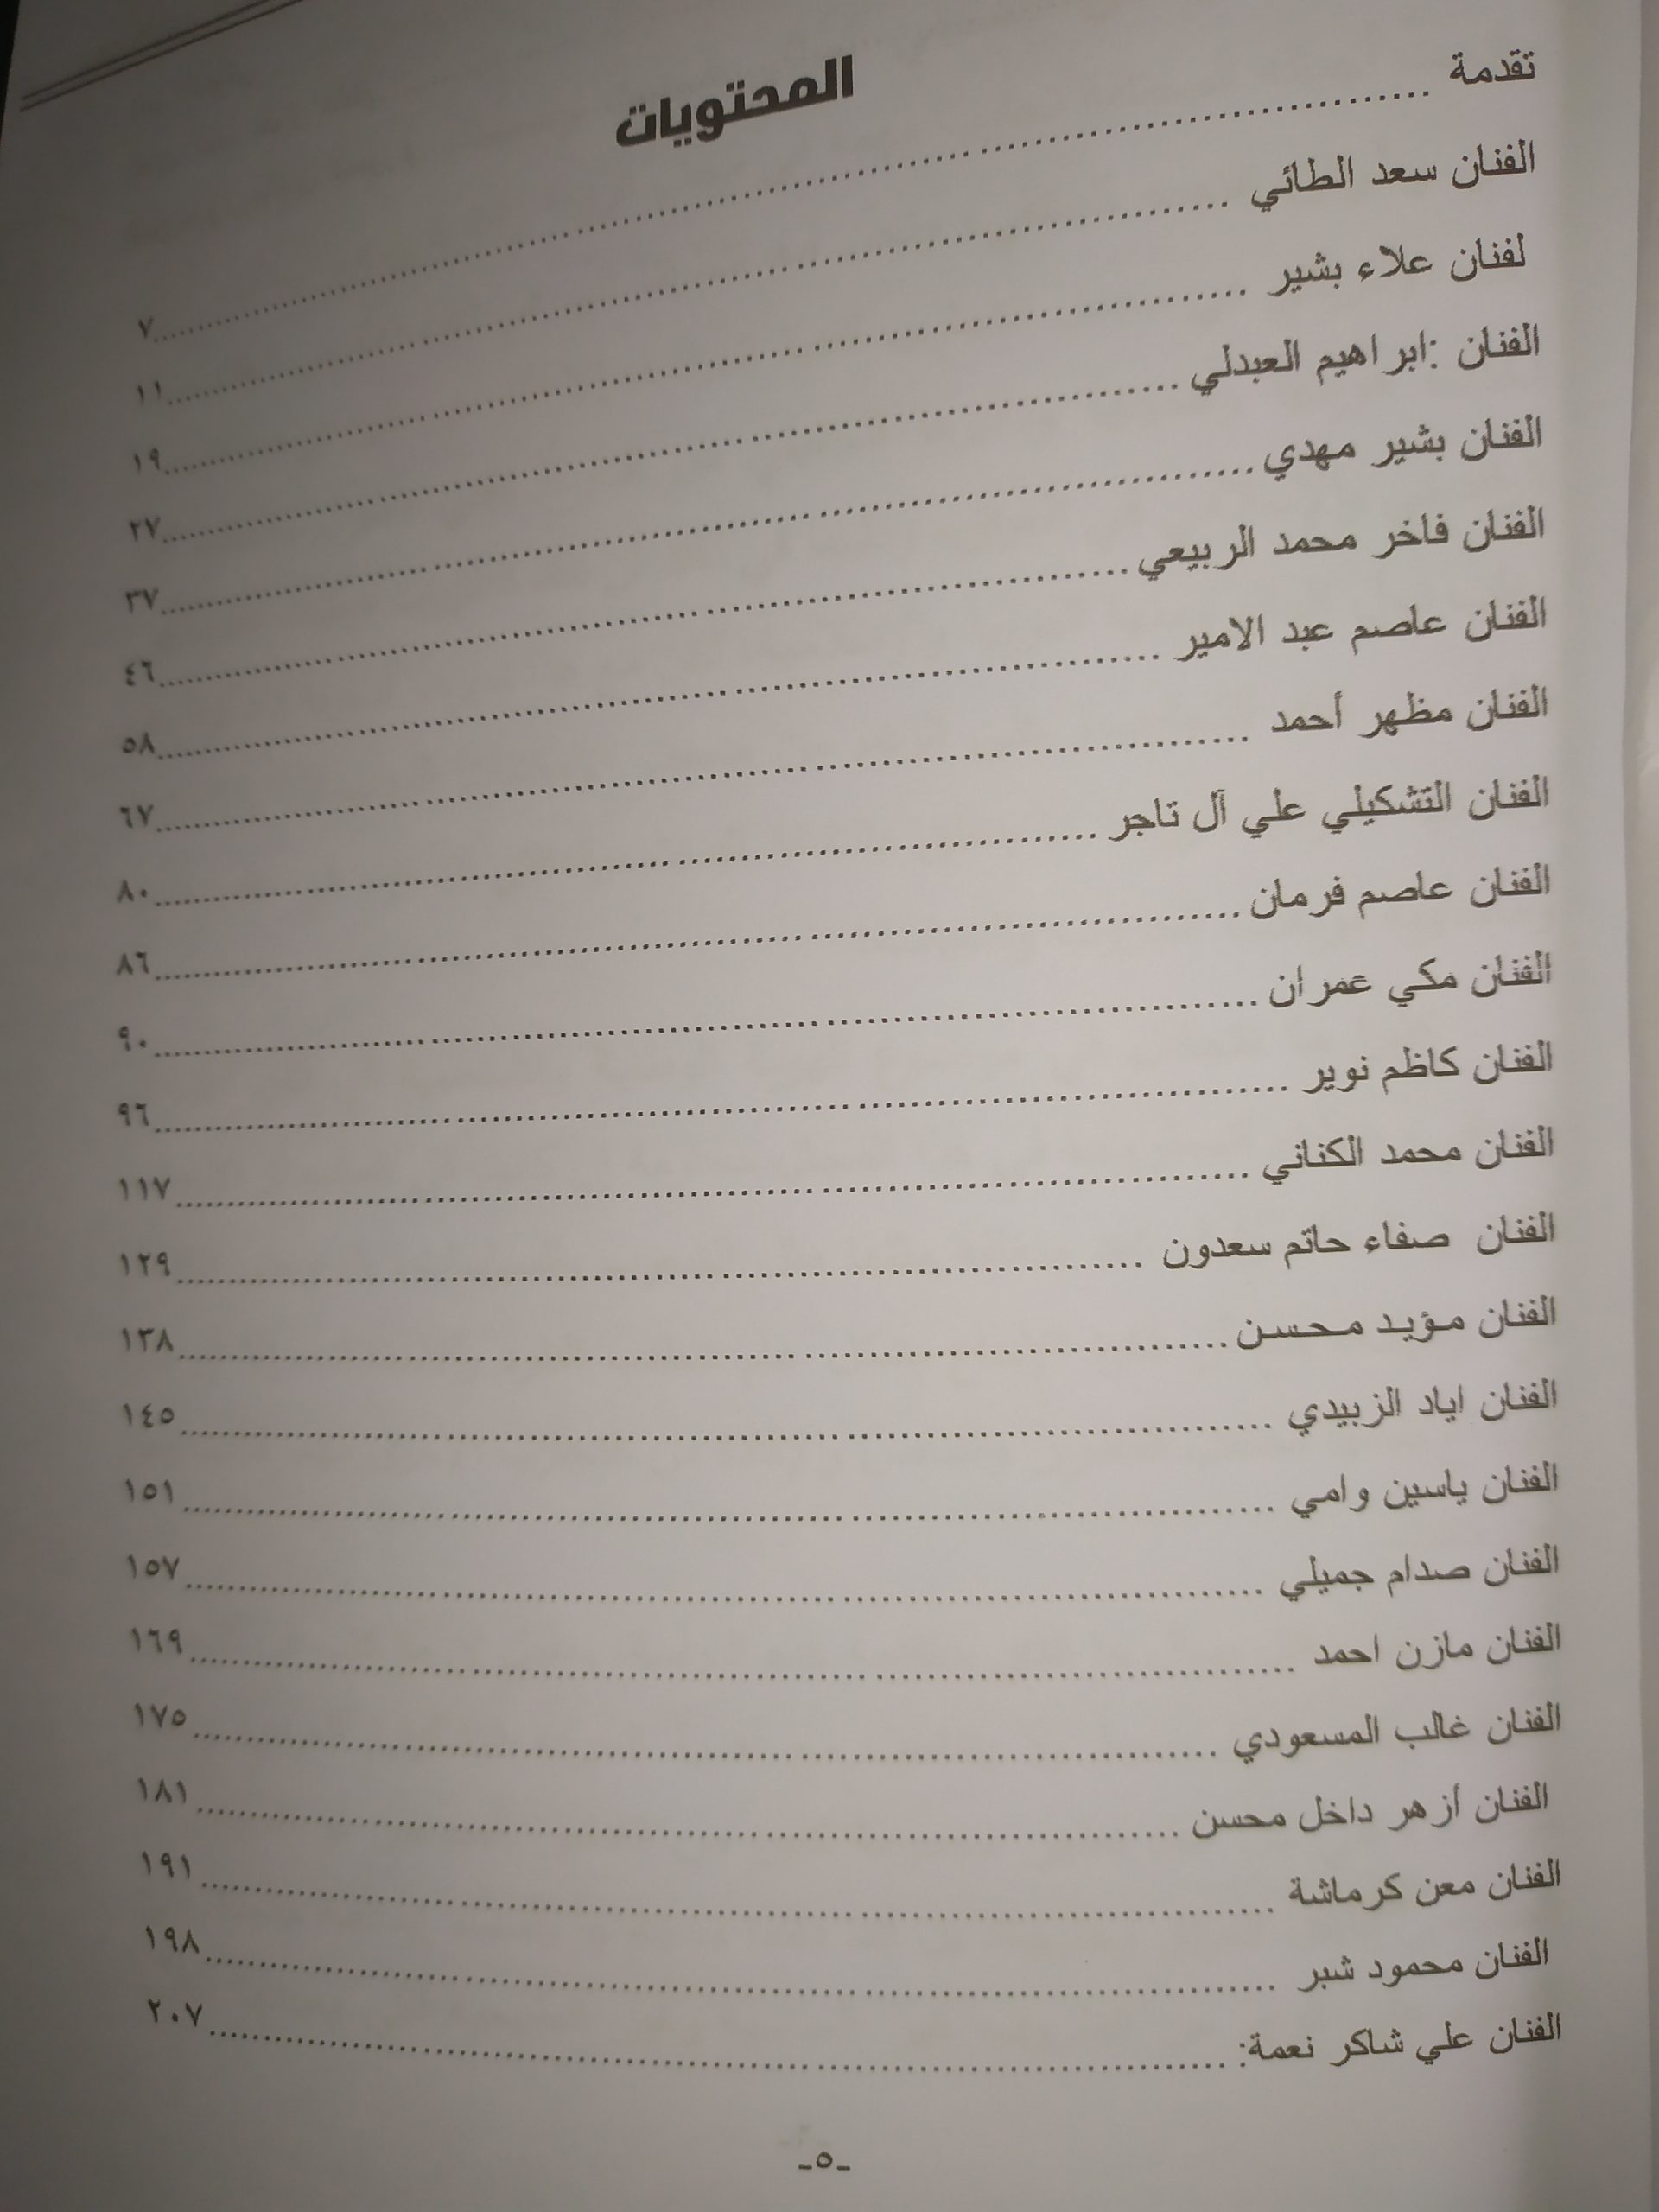 المحتويات
تقدمة ........ ٧
الفنان سعد الطائي ........ ١١
لفنان علاء بشير ........ ١٩
الفنان :ابراهيم العبدلي ........ ٢٧
الفنان بشير مهدي ........ ٣٧
الفنان فاخر محمد الربيعي ........ ٤٦
الفنان عاصم عبد الامير ........ ٥٨
الفنان مظهر أحمد ........ ٦٧
الفنان التشكيلي علي آل تاجر ........ ٨٠
الفنان عاصم فرمان ........ ٨٦
الفنان مكي عمران ........ ٩٠
الفنان كاظم نوير ........ ٩٦
الفنان محمد الكناني ........ ١١٧
الفنان صفاء حاتم سعدون ........ ١٢٩
الفنان مؤيد محسن ........ ١٣٨
الفنان اياد الزبيدي ........ ١٤٥
الفنان ياسين وامي ........ ١٥١
الفنان صدام جميلي ........ ١٥٧
الفنان مازن احمد ........ ١٦٩
الفنان غالب المسعودي ........ ١٧٥
الفنان أزهر داخل محسن ........ ١٨١
الفنان معن كرماشة ........ ١٩١
الفنان محمود شبر ........ ١٩٨
الفنان علي شاكر نعمة: ........ ٢٠٧
-٥-